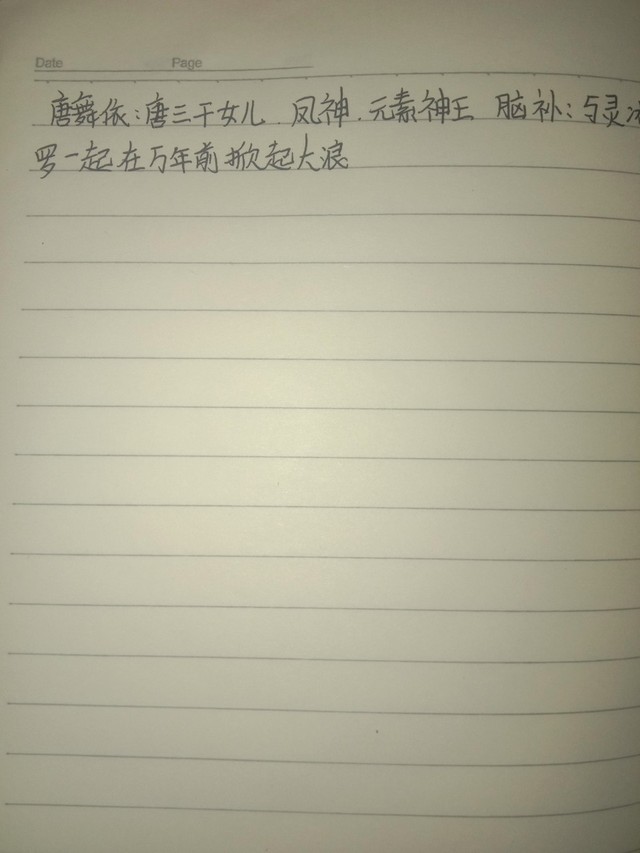 Date Page
唐舞依：唐三干女儿．凤神．元素神王 脑补：与灵
罗一起在万年前掀起大浪